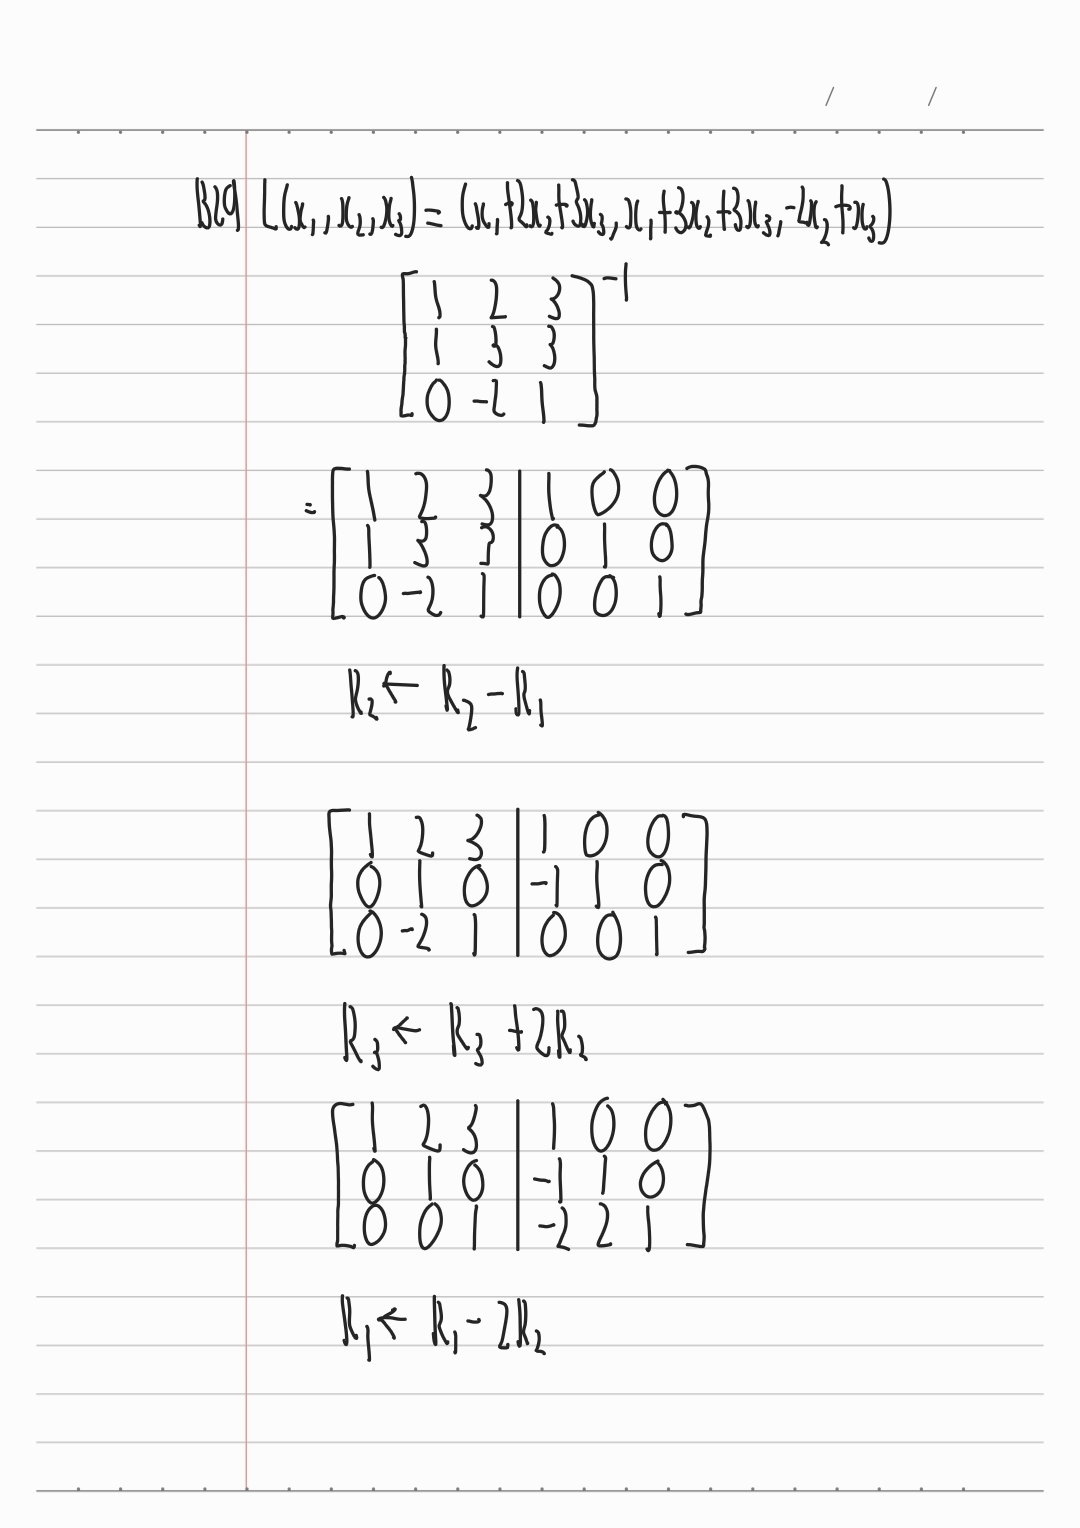 / /
B29 L(x₁, x₂, x₃) = (x₁+2x₂+3x₃, x₁+3x₂+3x₃, -2x₂+x₃)
[1 2 3
1 3 3
0 -2 1]⁻¹
= [1 2 3 | 1 0 0
1 3 3 | 0 1 0
0 -2 1 | 0 0 1]
R₂ ← R₂ - R₁
[1 2 3 | 1 0 0
0 1 0 | -1 1 0
0 -2 1 | 0 0 1]
R₃ ← R₃ + 2R₂
[1 2 3 | 1 0 0
0 1 0 | -1 1 0
0 0 1 | -2 2 1]
R₁ ← R₁ - 2R₂